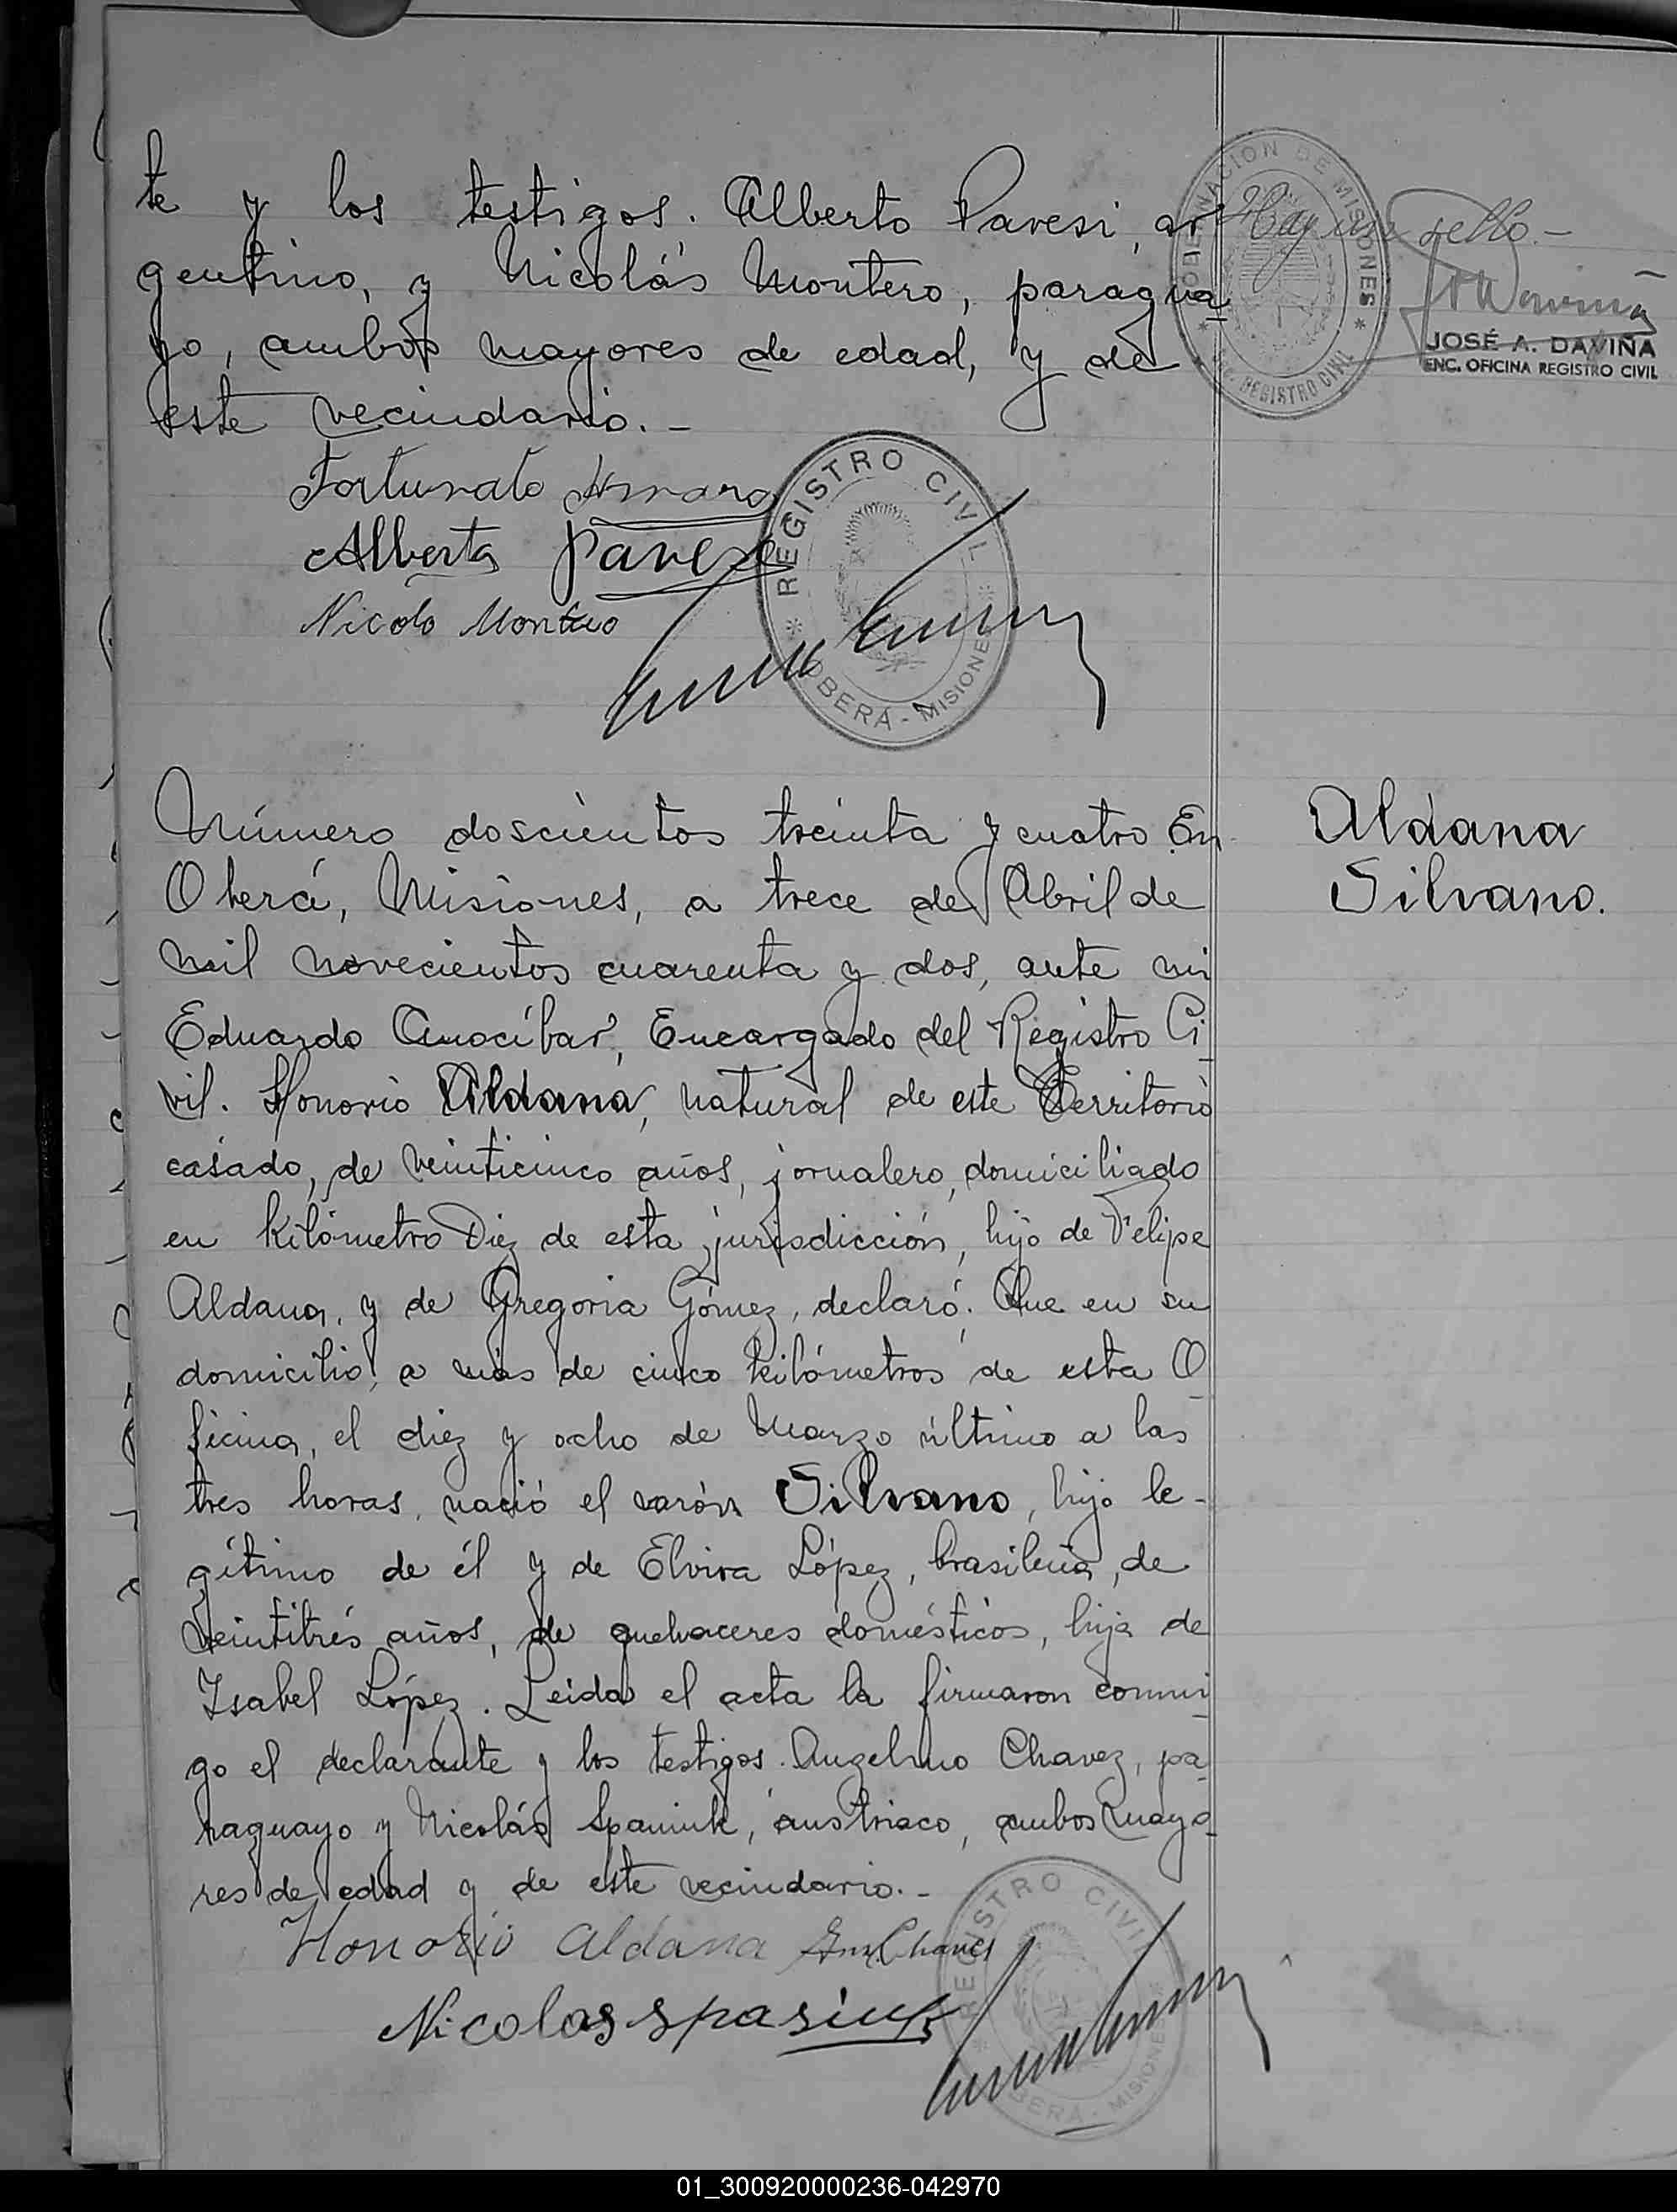 te y los testigos. Alberto Pavesi, ar
gentino, y Nicolás Montero, paragua
yo, ambos mayores de edad, y de
este vecindario.-
GOBERNACION DE MISIONES
REGISTRO CIVIL
Hay un sello.-
JOSÉ A. DAVIÑA
ENC. OFICINA REGISTRO CIVIL
Fortunato
Alberto Pavesi
Nicolo Montero
REGISTRO CIVIL
OBERÁ - MISIONES
Número doscientos treinta y cuatro En
Oberá, Misiones, a trece de Abril de
mil novecientos cuarenta y dos, ante mi
Eduardo Amocíbar, Encargado del Registro Ci
vil. Honorio Aldana, natural de este Territorio
casado, de veinticinco años, jornalero, domiciliado
en Kilómetro Diez de esta jurisdicción, hijo de Felipe
Aldana, y de Gregoria Gómez, declaró: Que en su
domicilio, a más de cinco kilómetros de esta O
ficina, el diez y ocho de Marzo último a las
tres horas, nació el varón Silvano, hijo le-
gítimo de él y de Elvira López, brasileña, de
veintitrés años, de quehaceres domésticos, hija de
Isabel López. Leida el acta la firmaron conmi
go el declarante y los testigos. Angelino Chavez, pa
raguayo y Nicolás Spaniuk, austriaco, ambos mayo
res de edad y de este vecindario.-
Aldana
Silvano.
Honorio Aldana Chavez
Nicolas Spasiuk
REGISTRO CIVIL
OBERÁ - MISIONES
01_300920000236-042970